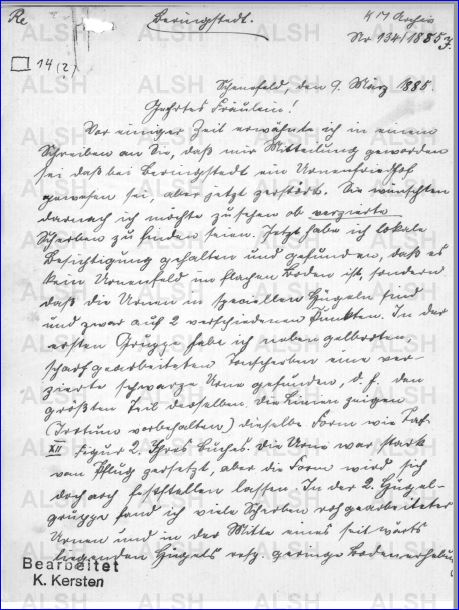 Re
Beringstedt.
KM Archiv
Nr 134/1885
14 (2)
Schenefeld, den 9. März 1885.
Geehrtes Fräulein!
Vor einiger Zeit erwähnte ich in einem
Schreiben an Sie, daß mir Mitteilung geworden
sei daß bei Beringstedt ein Urnenfriedhof
gewesen sei, aber jetzt zerstört. Sie wünschten
darnach ich möchte zusehen ob verzierte
Scherben zu finden seien. Jetzt habe ich lokale
Besichtigung gehalten und gefunden, daß es
kein Urnenfeld im flachen Boden ist, sondern
daß die Urnen in speciellen Hügeln sind
und zwar auf 2 verschiedenen Punkten. In der
ersten Gruppe habe ich neben gelbroten
scharf gearbeiteten Tonscherben eine ver-
zierte schwarze Urne gefunden, d. h. den
größten Teil derselben. Die Linien zeigen
(Irrtum vorbehalten) dieselbe Form wie Taf.
XII Figur 2. Ihres Buches. Die Urne war stark
vom Pflug zersetzt, aber die Form wird sich
doch noch feststellen lassen. In der 2. Hügel-
gruppe fand ich viele Scherben roh gearbeiteter
Urnen und in der Mitte eines seitwärts
liegenden Hügels resp. geringe Bodenerhebung
Bearbeitet
K. Kersten
ALSH